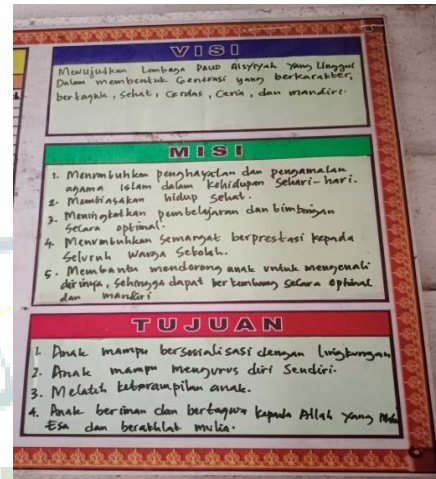 VISI
Mewujudkan Lembaga PAUD Aisyiyah Yang Unggul
Dalam membentuk Generasi yang berkarakter,
bertaqwa, Sehat, Cerdas, Ceria, dan mandiri.
MISI
1. Menumbuhkan penghayatan dan pengamalan
agama Islam dalam kehidupan sehari-hari.
2. Membiasakan hidup sehat.
3. Meningkatkan pembelajaran dan bimbingan
secara optimal.
4. Menumbuhkan semangat berprestasi kepada
seluruh warga sekolah.
5. Membantu mendorong anak untuk mengenali
dirinya, sehingga dapat berkembang secara optimal
dan mandiri
TUJUAN
1. Anak mampu bersosialisasi dengan lingkungan
2. Anak mampu mengurus diri sendiri.
3. Melatih keterampilan anak.
4. Anak beriman dan bertaqwa kepada Allah yang Maha
Esa dan berakhlak mulia.